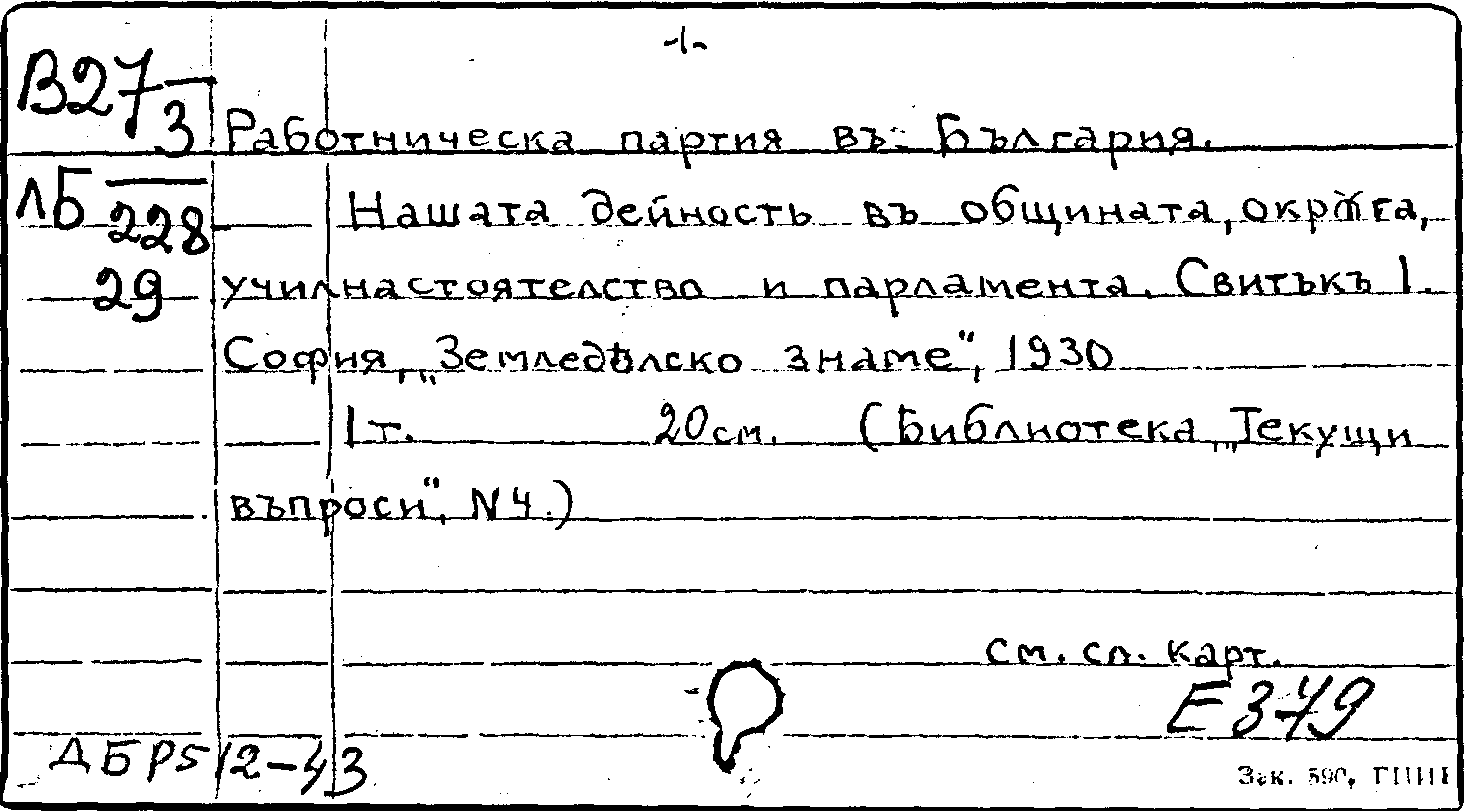 -1-
В27
3 Работническа партия въ България.
ЛБ 228 Нашата дейность въ общината, окрѫга,
29 училнастоятелство и парламента. Свитъкъ I.
София, „Земледѣлско знаме", 1930
1т. 20см. (Библиотека „Текущи
въпроси", N 4.)
см. сл. карт.
Е 379
ДБР512-43
Зак. 590,